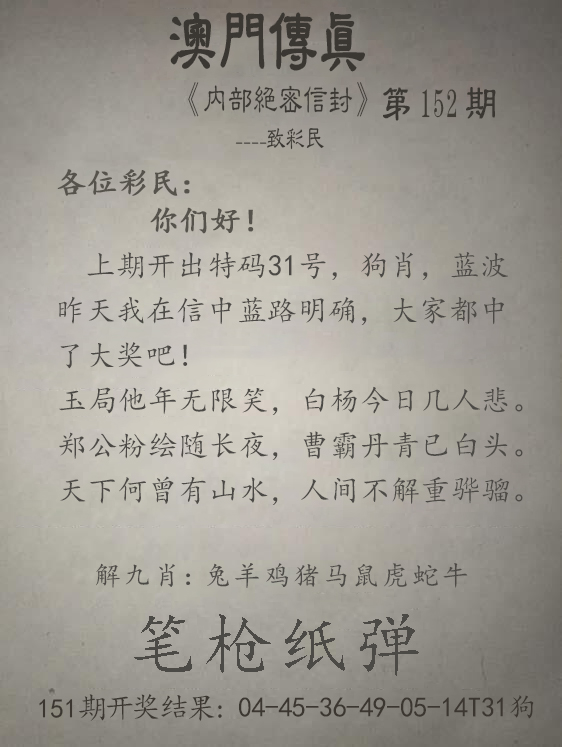 澳門傳眞
《内部絕密信封》第152期
----致彩民
各位彩民：
你们好！
上期开出特码31号，狗肖，蓝波
昨天我在信中蓝路明确，大家都中
了大奖吧！
玉局他年无限笑，白杨今日几人悲。
郑公粉绘随长夜，曹霸丹青已白头。
天下何曾有山水，人间不解重骅骝。
解九肖：兔羊鸡猪马鼠虎蛇牛
笔枪纸弹
151期开奖结果：04-45-36-49-05-14T31狗